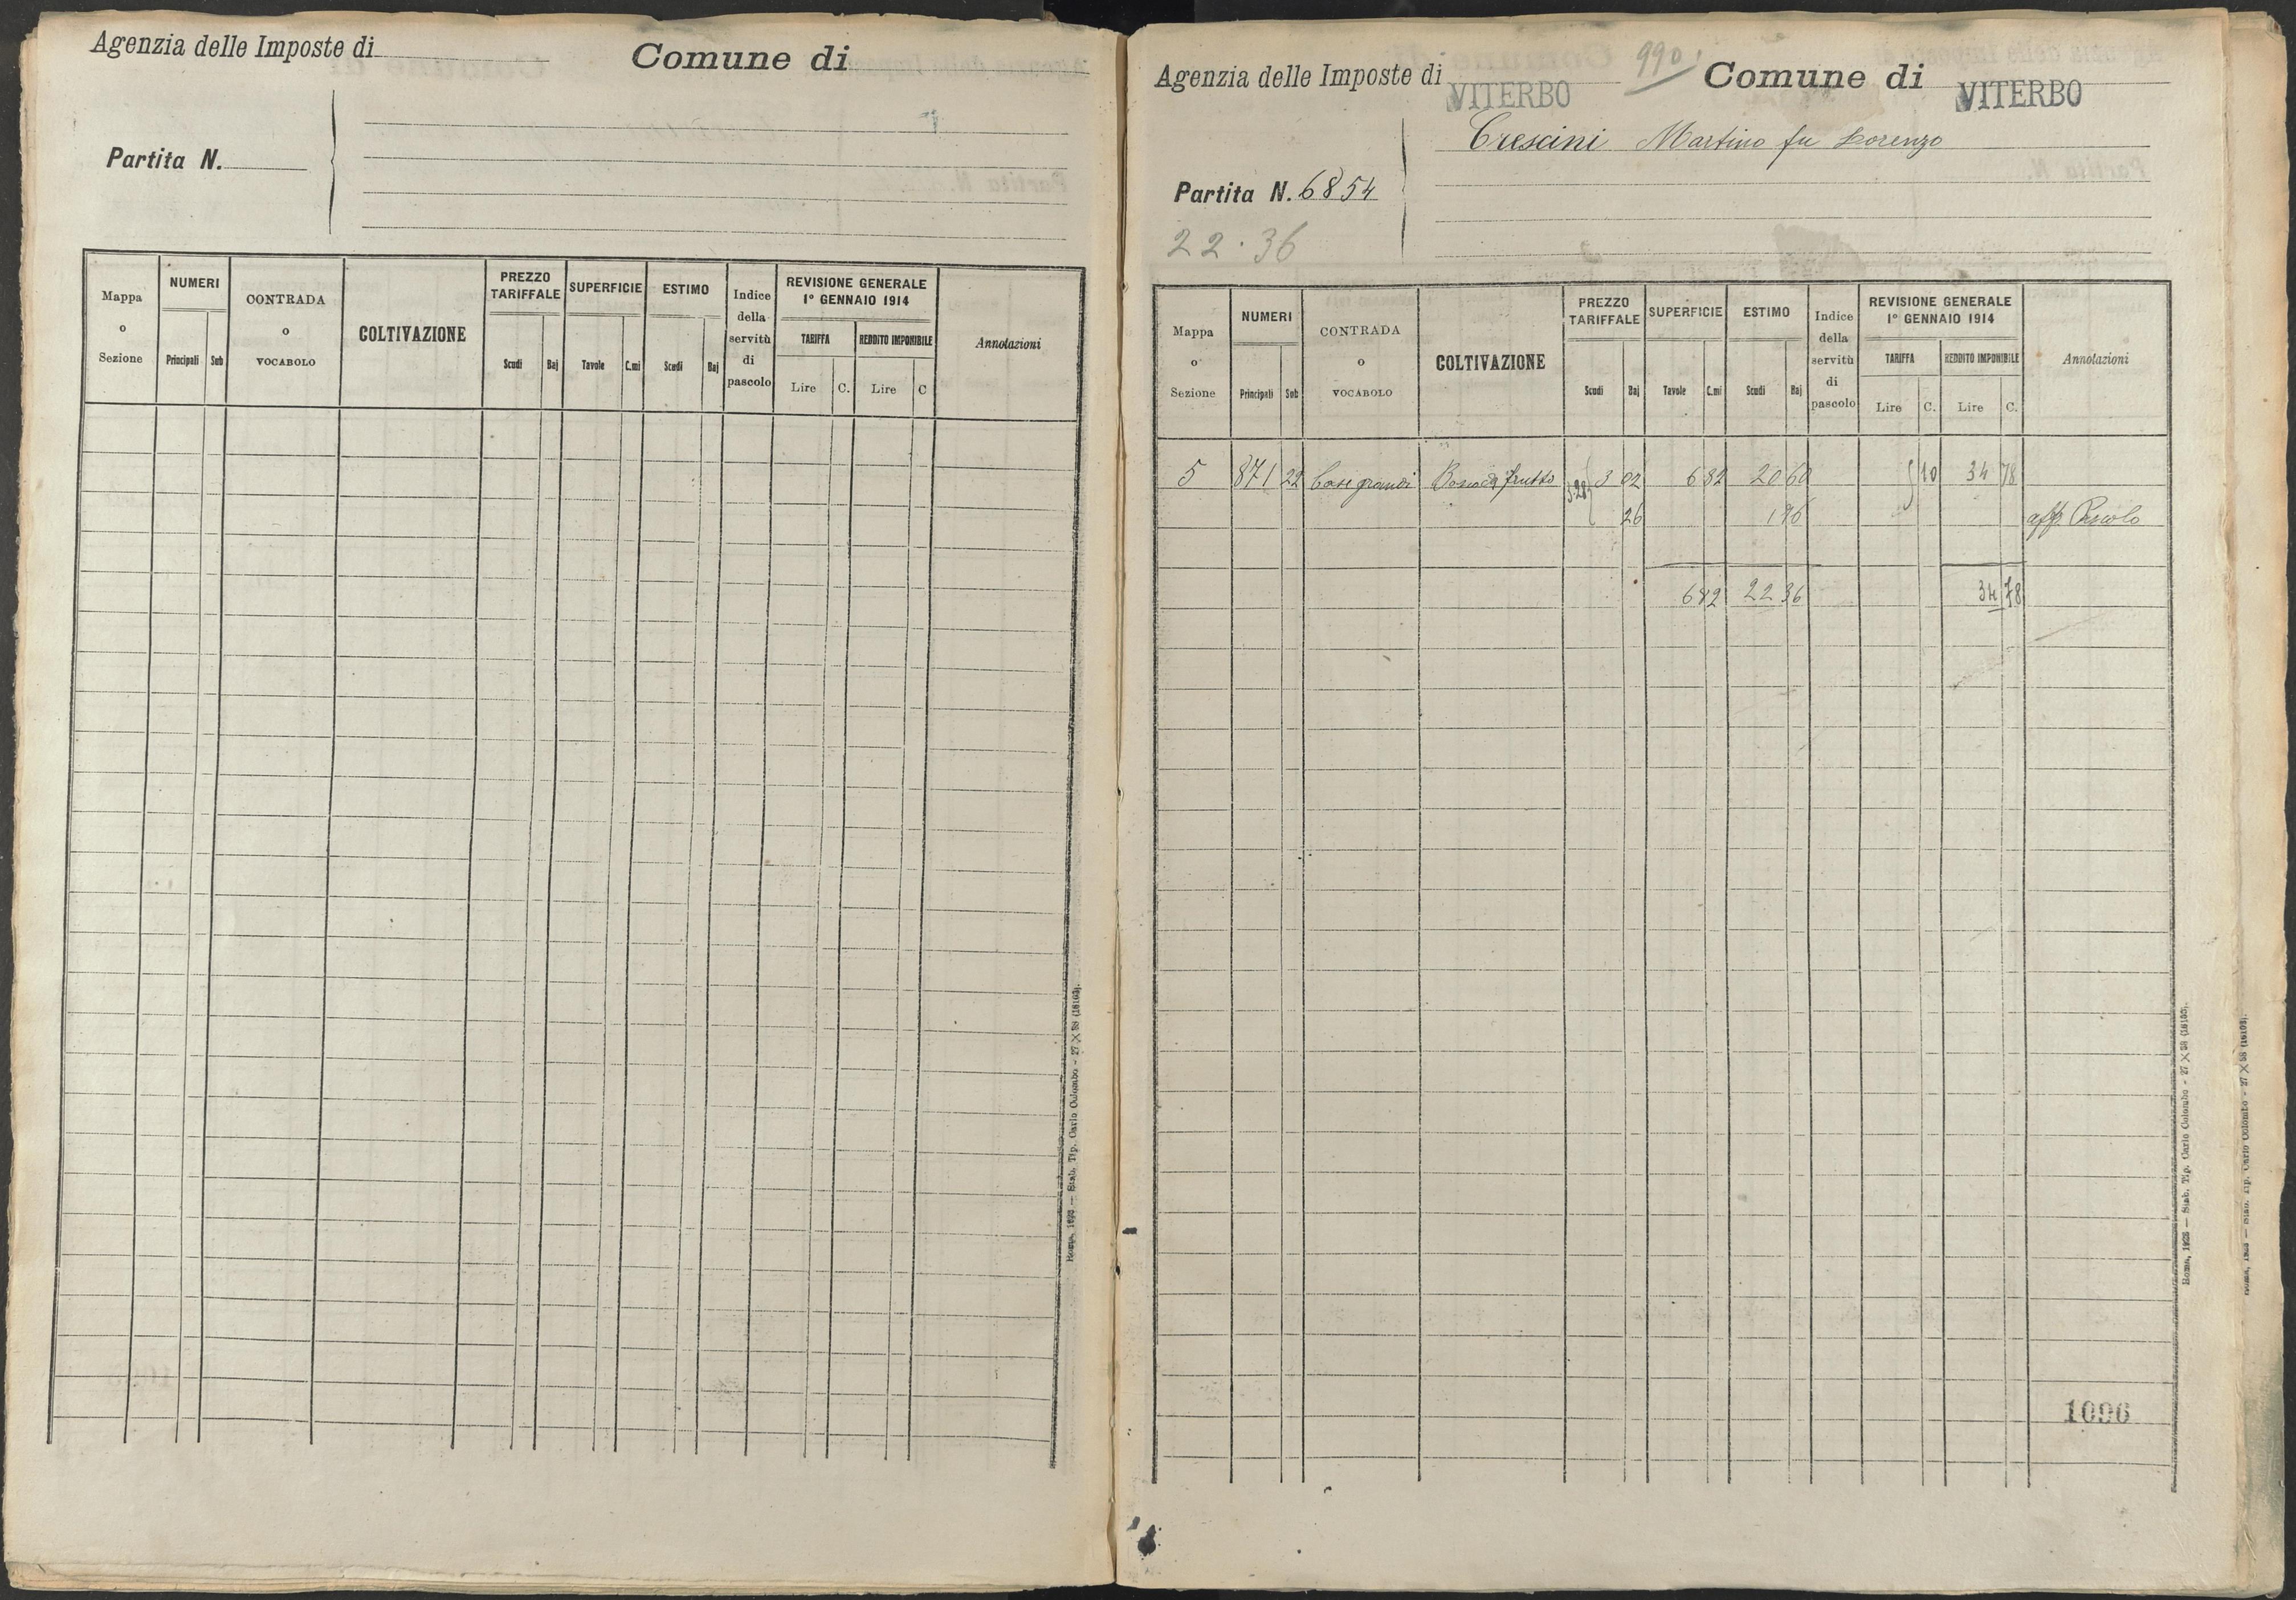 Agenzia delle Imposte di
Comune di
Partita N.
Mappa o Sezione
NUMERI
Principali Sub
CONTRADA o VOCABOLO
COLTIVAZIONE
PREZZO TARIFFALE
Scudi Baj
SUPERFICIE
Tavole C.mi
ESTIMO
Scudi Baj
Indice della servitù di pascolo
REVISIONE GENERALE
1° GENNAIO 1914
TARIFFA REDDITO IMPONIBILE
Lire C. Lire C
Annotazioni
Roma, 1923 — Stab. Tip. Carlo Colombo - 27 × 38 (16103).
990
Agenzia delle Imposte di VITERBO
Comune di VITERBO
Crescini Martino fu Lorenzo
Partita N. 6854
22.36
Mappa o Sezione
NUMERI
Principali Sub
CONTRADA o VOCABOLO
COLTIVAZIONE
PREZZO TARIFFALE
Scudi Baj
SUPERFICIE
Tavole C.mi
ESTIMO
Scudi Baj
Indice della servitù di pascolo
REVISIONE GENERALE
1° GENNAIO 1914
TARIFFA REDDITO IMPONIBILE
Lire C. Lire C.
Annotazioni
5 871 22 Case grandi frutto 3.28 3 02 6 82 20 60 10 34 78
26 1 96 aff. Pascolo
6 82 22 36 34 78
1096
Roma, 1923 — Stab. Tip. Carlo Colombo - 27 × 38 (16103).
Roma, 1923 — Stab. Tip. Carlo Colombo - 27 × 38 (16103).